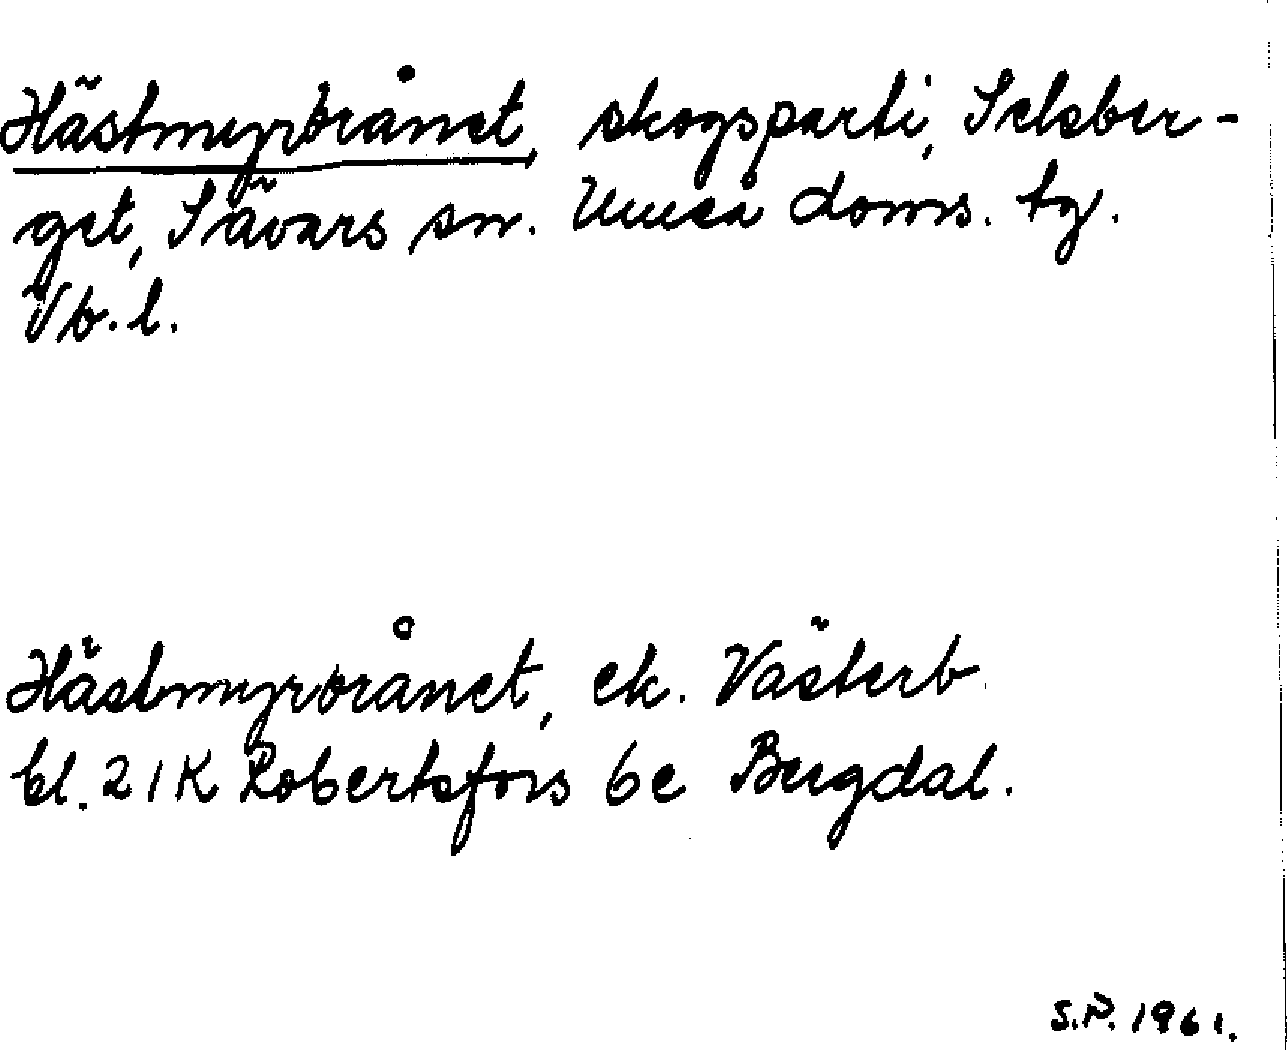 Hästmyrbrånet, skogsparti, Selsber-
get, Sävars sn. Umeå doms. tg.
Vb. l.
Hästmyrbrånet, ek. Västerb.
bl. 21K Robertsfors 6e Bergdal.
S.P. 1961.